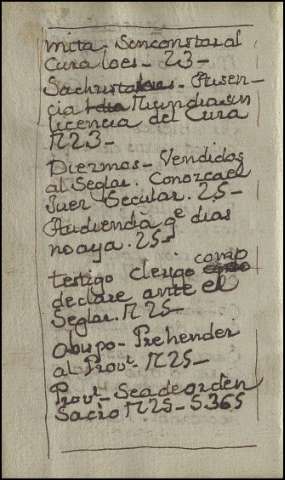 mita. Sin constar al
Cura loes - 23 -
Sachristanes - Ausen-
cia Niun dia sin
licencia del Cura
N23 -
Diezmos - Vendidos
al Seglar. Conozca el
Juez Secular. 25 -
Audiencia qe dias
no aya. 25 -
testigo clerigo como
declare ante el
Seglar. N25 -
Obispo - Prehender
al Provr. N25 -
Provr. Sea de orden
Sacro N25 - S365